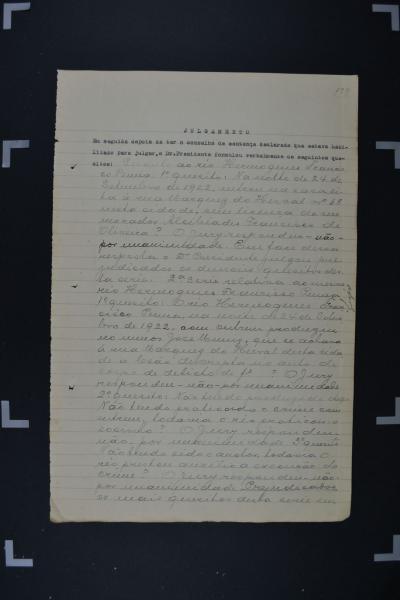 JULGAMENTO
Em seguida depois de ter o conselho de sentença declarado que estava habi-
litado para julgar, o Dr. Presidente formulou verbalmente os seguintes que-
sitos: ao réo Hermogenes Francis-
co Penna. 1º quesito: Na noite de 24 de
Setembro de 1922, entrou na casa
à rua Marquez do Herval nº 68
nesta cidade, sem licença do seu
morador Francisco de
Oliveira? O Jury respondeu - não -
por unanimidade. Em face dessa
resposta o Dr. Presidente julgou pre-
judicados os demais quesitos des-
ta serie. 2ª Serie relativa ao mesmo
réo Hermogenes Francisco Penna
1º quesito: O réo Hermogenes Fran-
cisco Penna, na noite de 24 de
bro de 1922, com outrem produziu
José que se achava
à rua Marquez do Herval desta cida-
de a lesão descripta no auto de
corpo de delicto de fl ? O Jury
respondeu - não - por unanimidade
2º quesito: Não tendo
Não tendo praticado o crime com
outrem, todavia o réo
? O Jury respondeu
não, por unanimidade 3º quesito
Não tendo sido o auctor, todavia o
réo prestou auxilio á execução do
crime? O Jury respondeu - não -
por unanimidade. Prejudicados
os mais quesitos desta serie em